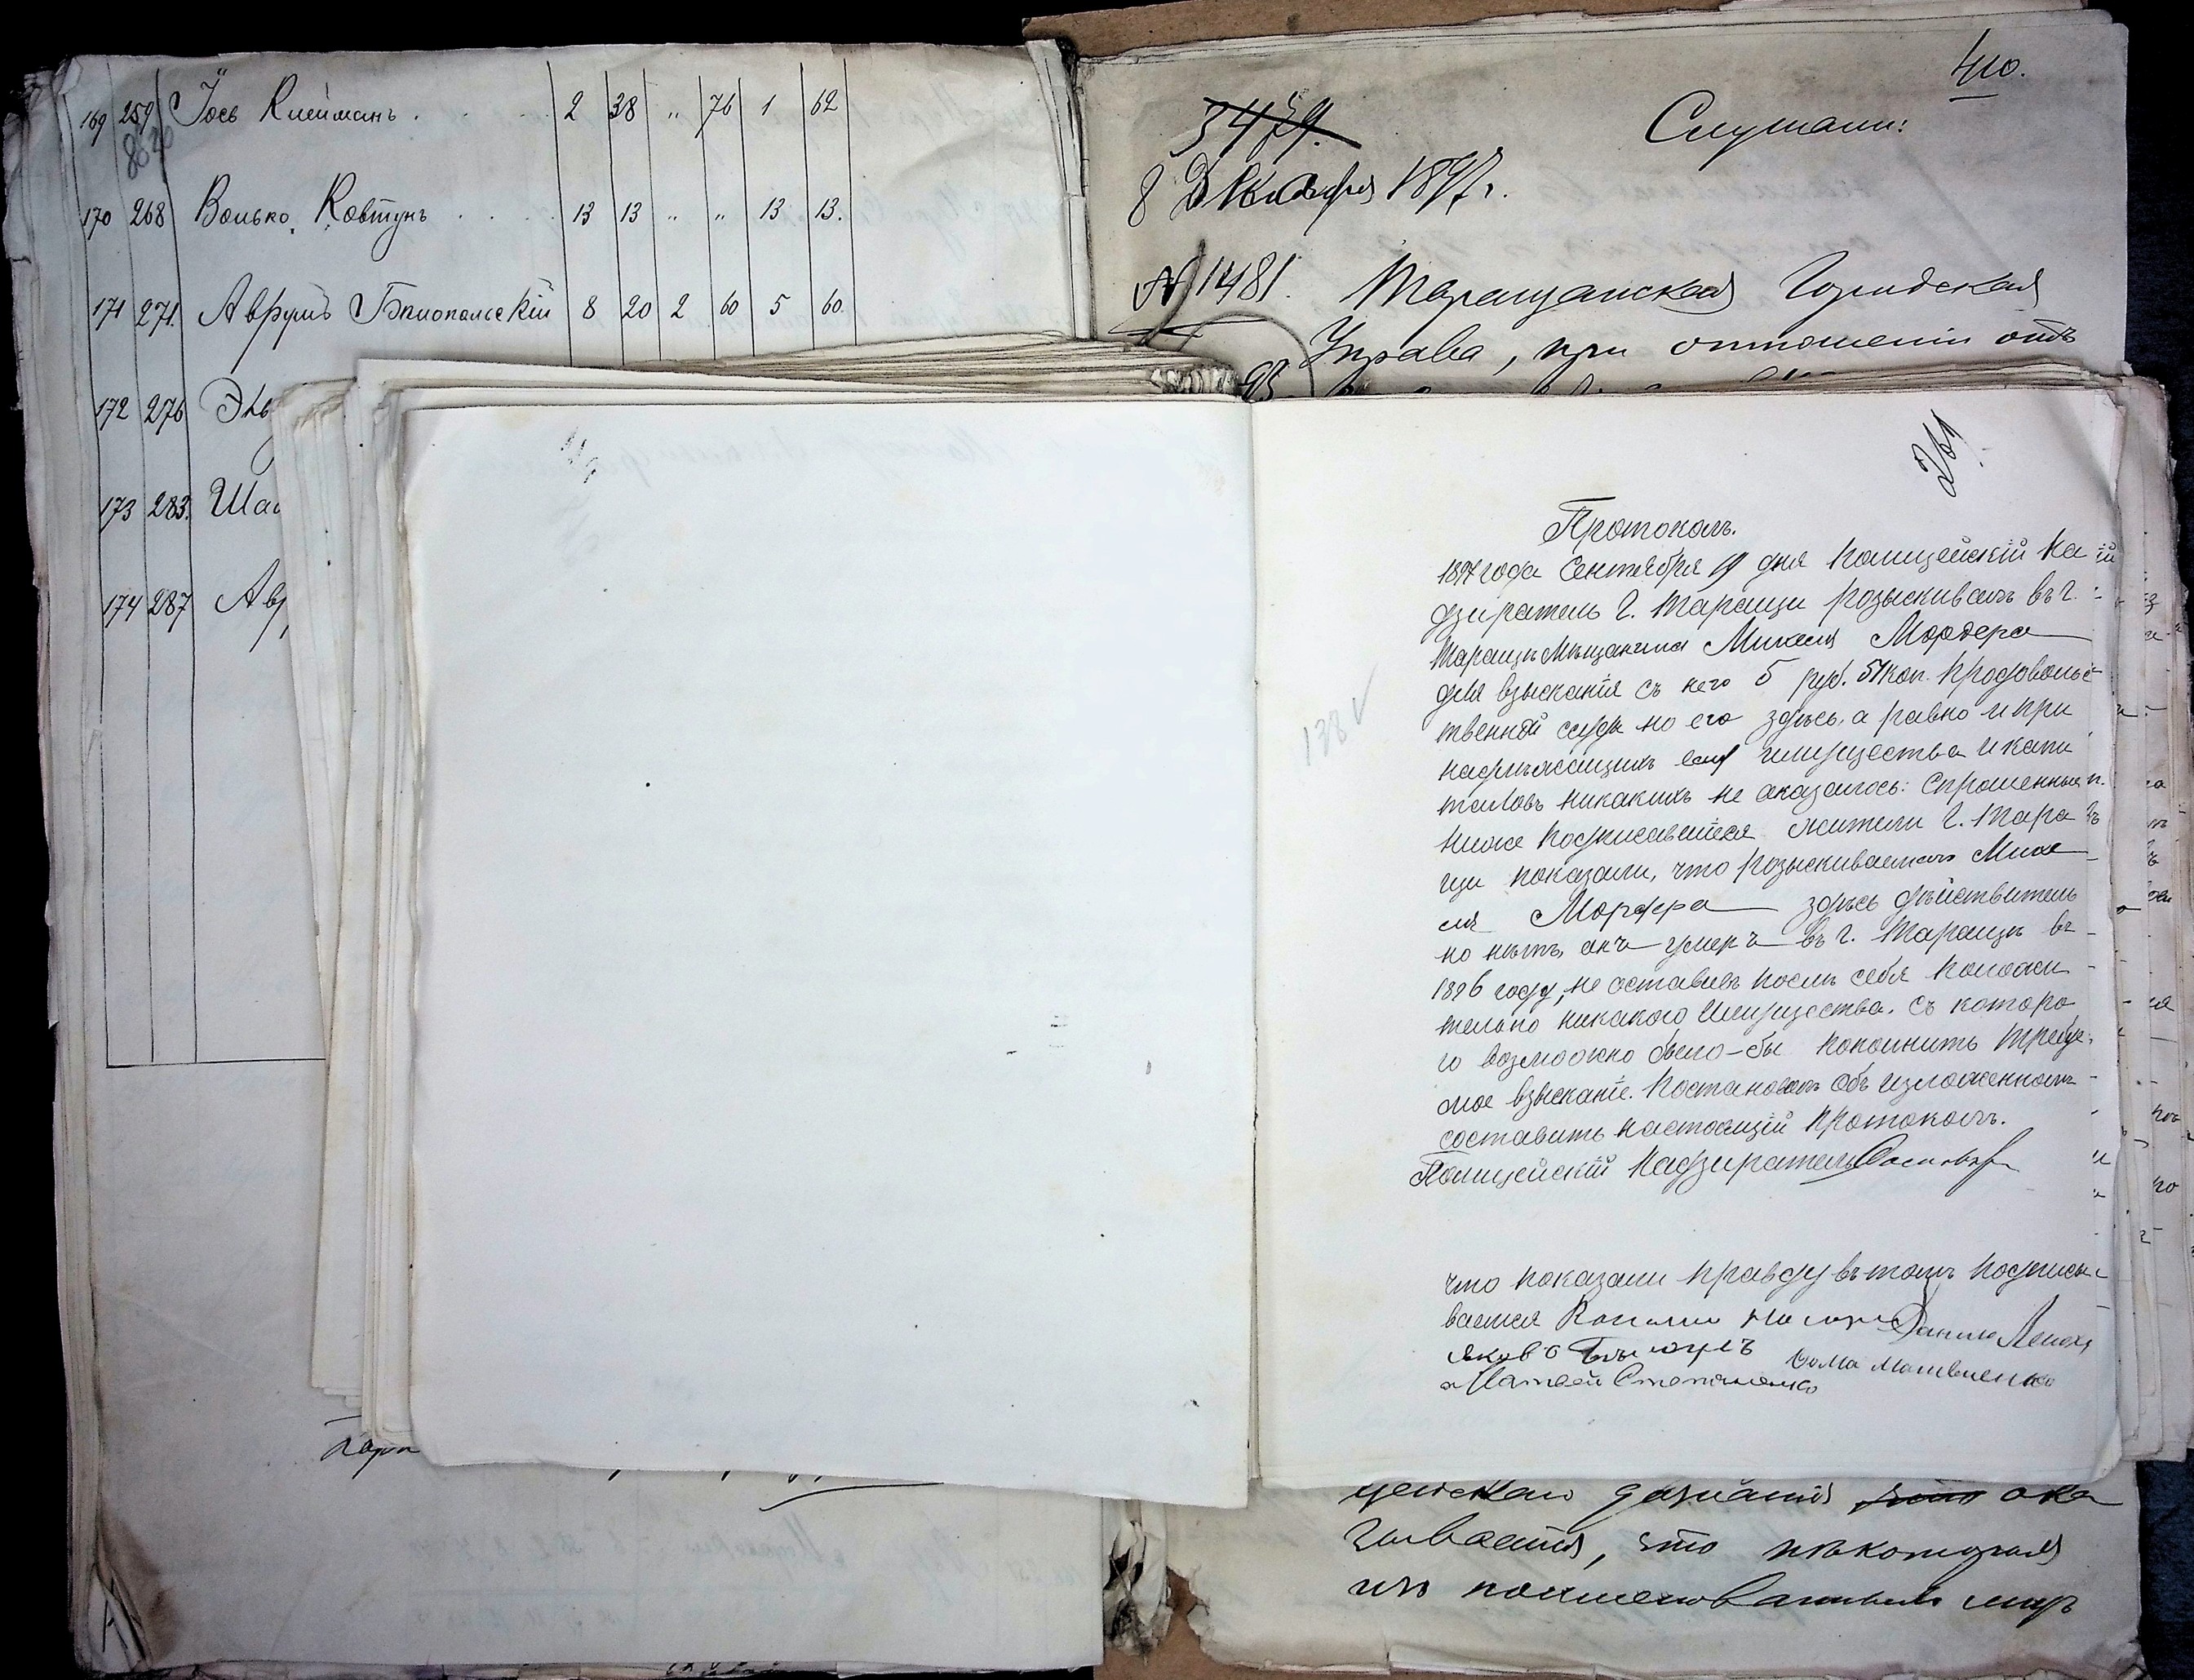 169 259 Іось Клейманъ 2 38 " 76 1 62
170 268 Волько Ковтунъ 13 13 " " 13 13.
171 271. Аврумъ Бѣлопольскій 8 20 2 60 5 60.
172 276
173 283.
174 287
410.
3479.
Слушали:
8 Декабря 1897 г.
№ 1481. Таращанская Городская
Управа, при отношеніи отъ
261
Протоколъ.
1897 года Сентября 19 дня Полицейскій На
дзиратель г. Таращи розыскивалъ въ г.
Таращѣ мѣщанина Михеля Мордера
для взысканія съ него 5 руб. 51 коп. продовольс
твенной ссуды но его здѣсь, а равно и при
надлежащихъ ему имущества и капи
таловъ никакихъ не оказалось: Спрошенные
ниже подписавшіеся жители г. Тара
щи показали, что розыскиваемаго Михе
ля Мордера здѣсь дѣйствитель
но нѣтъ, онъ умеръ въ г. Таращѣ въ
1896 году, не оставивъ послѣ себя положи
тельно никакого имущества, съ которо
го возможно было-бы пополнить требуе
мое взысканіе. Постановилъ объ изложенномъ
составить настоящій протоколъ.
Полицейскій Надзиратель
138 √
что показали правду въ томъ подписы
ваемся Данило
Яковъ Фома Матвіенко
Матвей Степаненко
цейскаго дознанія ока
зывается, что нѣкоторыя
изъ поименованныхъ лицъ